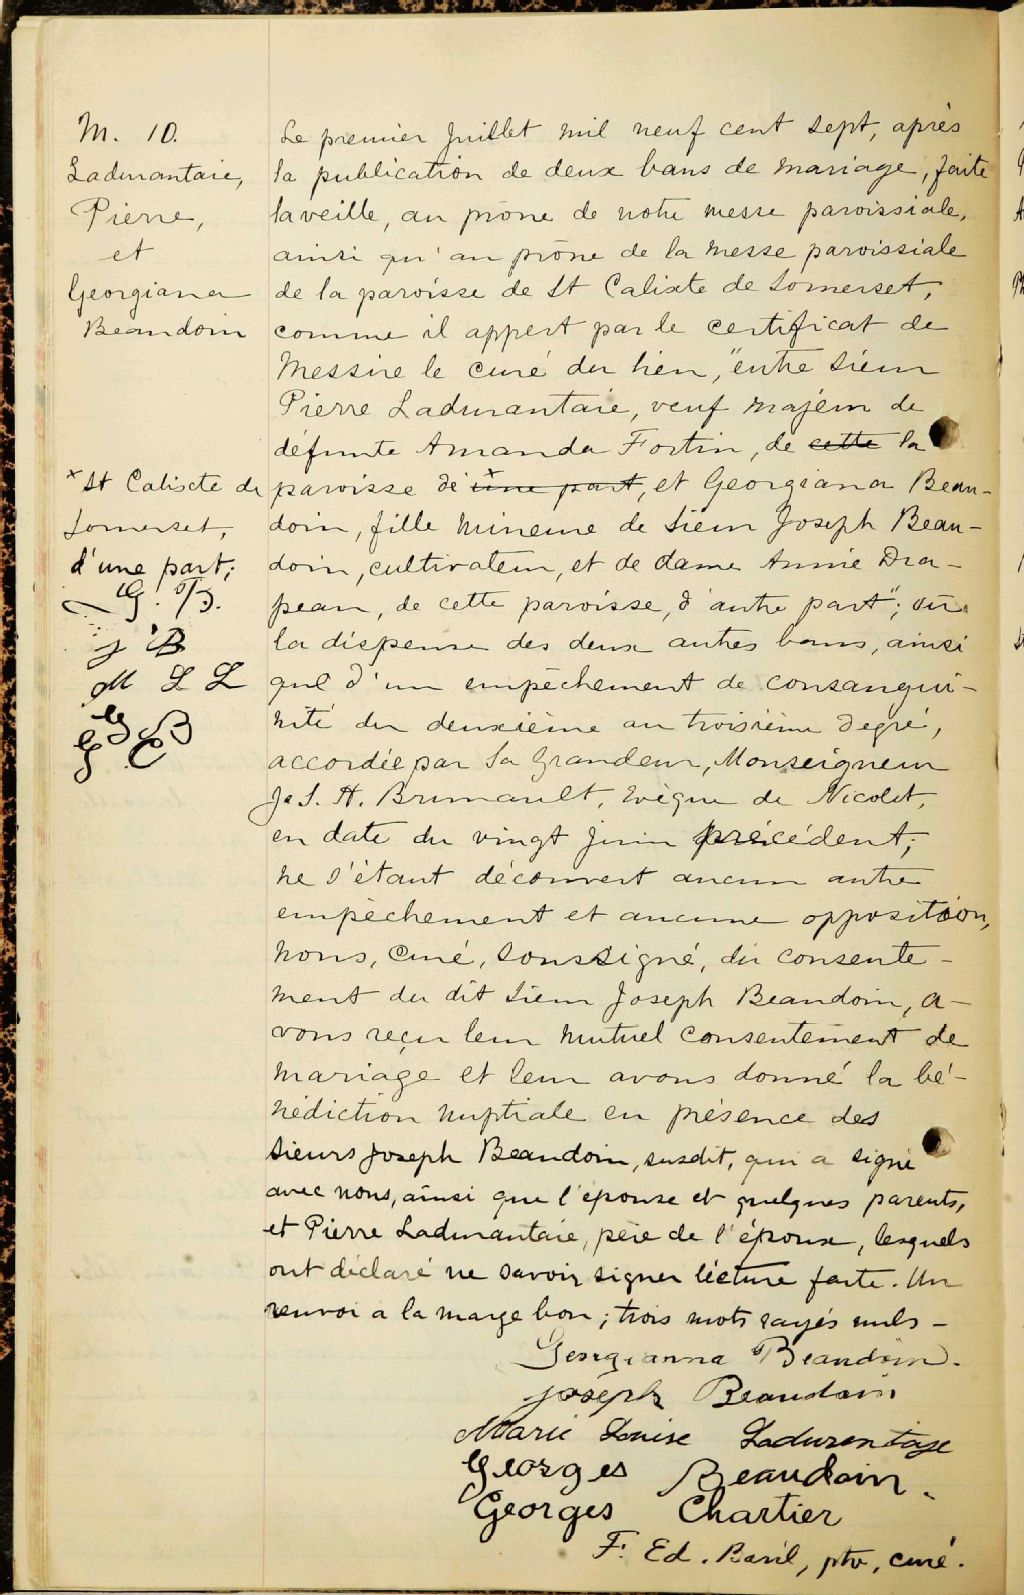 M. 10.
Ladurantaie,
Pierre,
et
Georgiana
Beaudoin
Le premier Juillet mil neuf cent sept, après
la publication de deux bans de mariage, faite
la veille, au prône de notre messe paroissiale,
ainsi qu'au prône de la messe paroissiale
de la paroisse de St Calixte de Somerset,
comme il appert par le certificat de
Messire le curé du lieu, "entre Sieur
Pierre Ladurantaie, veuf majeur de
défunte Amanda Fortin, de cette la
paroisse de x une part, et Georgiana Beau-
doin, fille mineure de Sieur Joseph Beau-
doin, cultivateur, et de dame Annie Dra-
peau, de cette paroisse, d'autre part"; vu
la dispense des deux autres bans, ainsi
que d'un empêchement de consangui-
nité du deuxième au troisième degré,
accordée par Sa Grandeur, Monseigneur
J. S. H. Brunault, Evêque de Nicolet,
en date du vingt juin précédent;
ne s'étant découvert aucun autre
empêchement et aucune opposition,
nous, curé, soussigné, du consente-
ment du dit Sieur Joseph Beaudoin, a-
vons reçu leur mutuel consentement de
mariage et leur avons donné la bé-
nédiction nuptiale en présence des
Sieurs Joseph Beaudoin, susdit, qui a signé
avec nous, ainsi que l'épouse et quelques parents,
et Pierre Ladurantaie, père de l'époux, lesquels
ont déclaré ne savoir signer lecture faite. Un
renvoi a la marge bon; trois mots rayés nuls -
x St Calixte de
Somerset,
d'une part;
G. B.
J B
M L L
G B
G C
Georgianna Beaudoin.
Joseph Beaudoin
Marie Louise Ladurentaye
Georges Beaudoin.
Georges Chartier
F. Ed. Baril, ptr, curé.